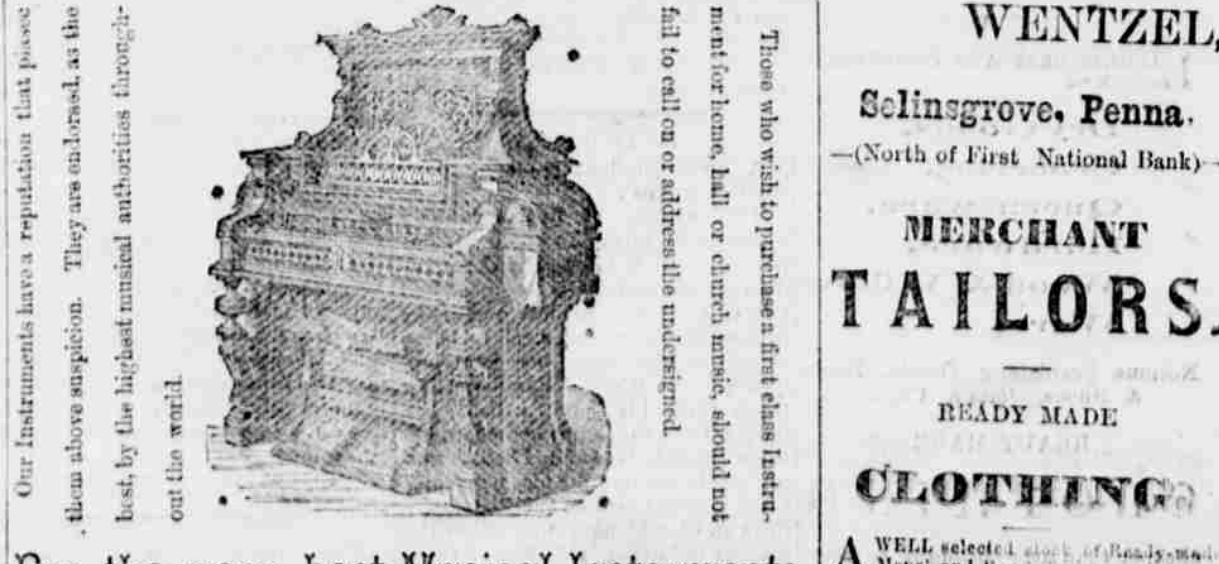 Our Instruments have a reputation that places
them above suspicion. They are endorsed, as the
best, by the highest musical authorities through-
out the world.
Those who wish to purchase a first class Instru-
ment for home, hall or church music, should not
fail to call on or address the undersigned.
WENTZEL,
Selinsgrove, Penna.
—(North of First National Bank)—
MERCHANT
TAILORS.
READY MADE
CLOTHING
A WELL selected stock of Ready-made